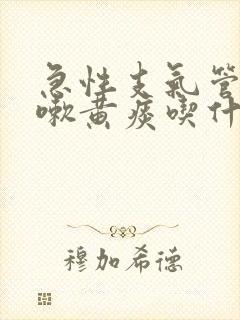 急性支氣管
嗽黄痰喫什
穆加希德